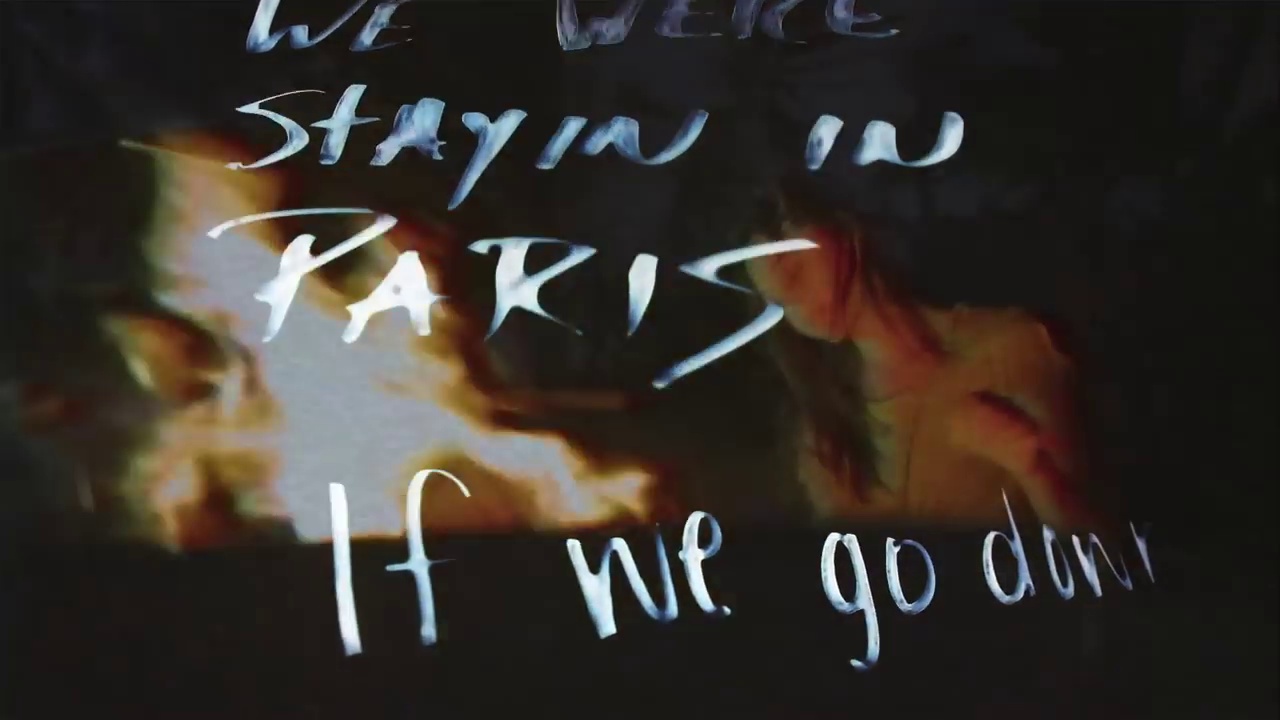 WE WERE
StAYIN IN
PARIS
If we go down